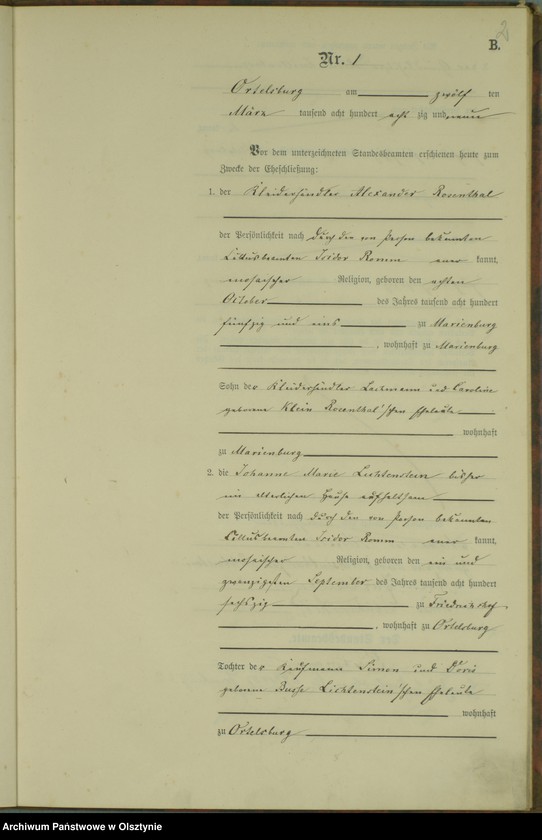 2
B.
Nr. 1
Ortelsburg am zwölf ten
März tausend acht hundert acht zig und neun
Vor dem unterzeichneten Standesbeamten erschienen heute zum
Zwecke der Eheschließung:
1. der Kleiderhändler Alexander Rosenthal
der Persönlichkeit nach durch den von Person bekannten
Cultusbeamten Isidor Romm aner kannt,
mosaischer Religion, geboren den achten
October des Jahres tausend acht hundert
fünfzig und eins zu Marienburg
, wohnhaft zu Marienburg
Sohn der Kleiderhändler Lachmann und Caroline
geborene Klein Rosenthal'schen Eheleute
wohnhaft
zu Marienburg
2. die Johanne Marie Lichtenstein bisher
im elterlichen Hause aufhaltsam
der Persönlichkeit nach durch den von Person bekannten
Cultusbeamten Isidor Romm aner kannt,
mosaischer Religion, geboren den ein und
zwanzigsten September des Jahres tausend acht hundert
sechszig zu Friedrichshof
, wohnhaft zu Ortelsburg
Tochter der Kaufmann Simon und Doris
geborene Lichtenstein'schen Eheleute
wohnhaft
zu Ortelsburg
Archiwum Państwowe w Olsztynie